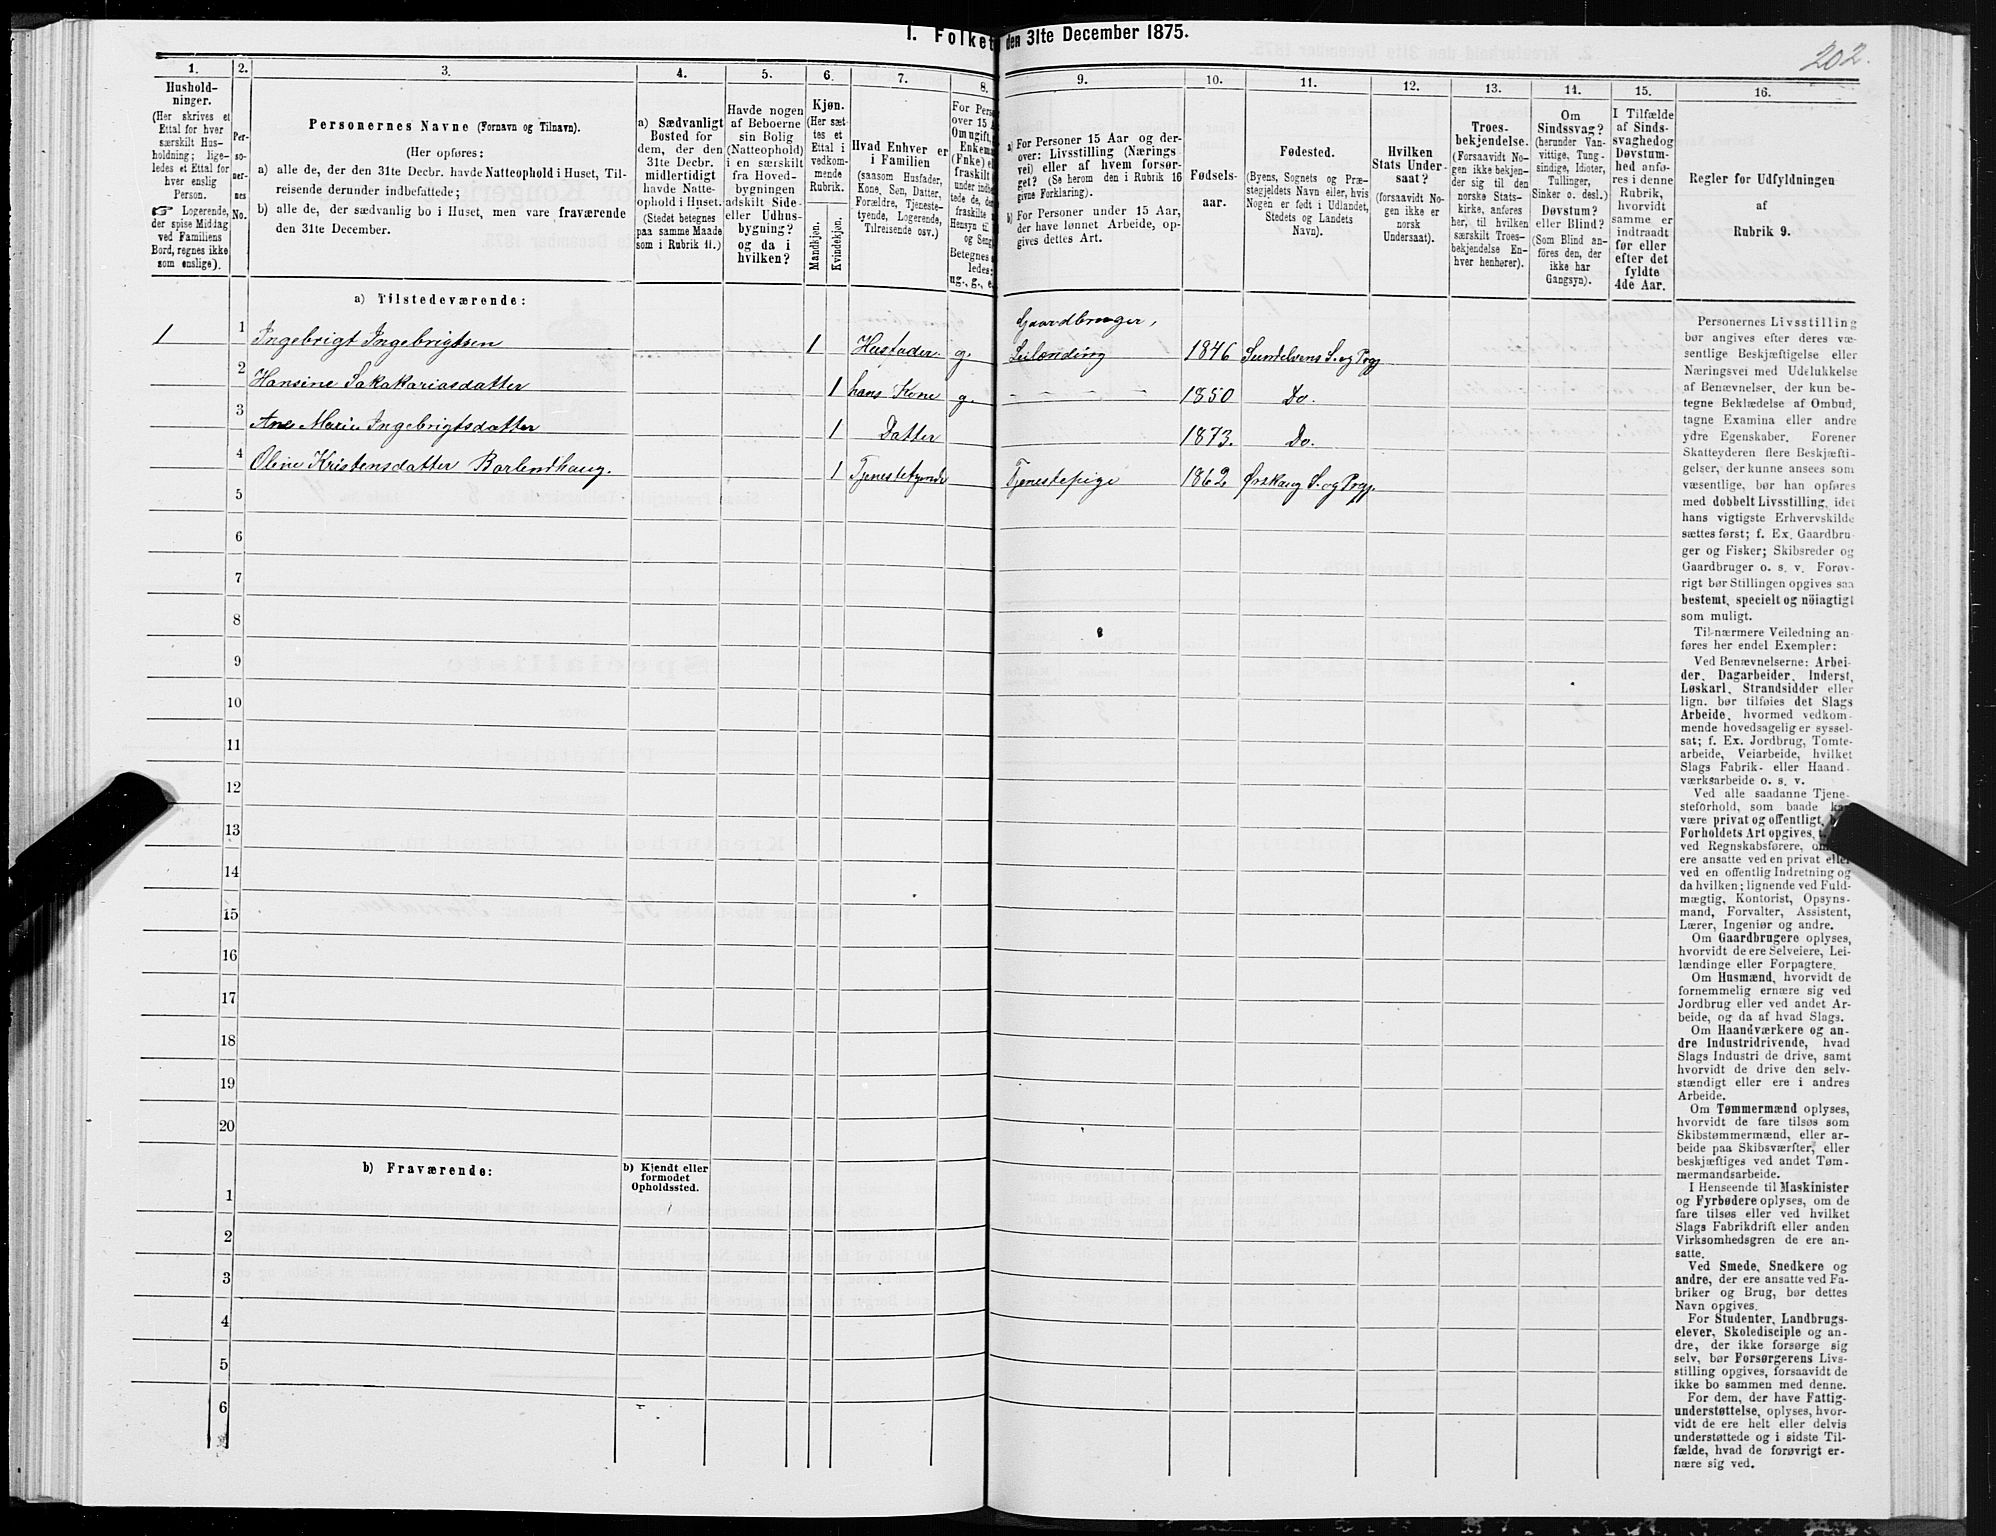 I. Folket
den 31te December 1875.
202.
1.
Hushold-
ninger.
(Her skrives et
Ettal for hver
særskilt Hus-
holdning; lige-
ledes et Ettal for
hver enslig
Person.
☞ Logerende,
der spise Middag
ved Familiens
Bord, regnes ikke
som enslige).
2.
Per-
so-
ner-
nes
No.
3.
Personernes Navne (Fornavn og Tilnavn).
(Her opføres:
a) alle de, der den 31te Decbr. havde Natteophold i Huset, Til-
reisende derunder indbefattede;
b) alle de, der sædvanlig bo i Huset, men vare fraværende
den 31te December.
4.
a) Sædvanligt
Bosted for
dem, der den
31te Decbr.
midlertidigt
havde Natte-
ophold i Huset.
(Stedet betegnes
paa samme Maade
som i Rubrik 11.)
5.
Havde nogen
af Beboerne
sin Bolig
(Natteophold)
i en særskilt
fra Hoved-
bygningen
adskilt Side-
eller Udhus-
bygning?
og da i
hvilken?
6.
Kjøn.
(Her sæt-
tes et
Ettal i
vedkom-
mende
Rubrik.
Mandkjøn.
Kvindekjøn.
7.
Hvad Enhver er
i Familien
(saasom Husfader,
Kone, Søn, Datter,
Forældre, Tjeneste-
tyende, Logerende,
Tilreisende osv.)
8.
For Pers
over 15 A
Om ugift,
Enkema
(Fnke) e
fraskilt
under indb
tede de, de
fraskilte
Hensyn til
og Seng
Betegnes
ledes:
ug., g., e
9.
a) For Personer 15 Aar og der-
over: Livsstilling (Nærings
vei) eller af hvem forsør-
get? (Se herom den i Rubrik 16
givne Forklaring).
b) For Personer under 15 Aar,
der have lønnet Arbeide, op-
gives dettes Art.
10.
Fødsels-
aar.
11.
Fødested.
(Byens, Sognets og Præ-
stegjeldets Navn eller, hvis
Nogen er født i Udlandet,
Stedets og Landets
Navn).
12.
Hvilken
Stats Under-
saat?
(forsaavidt No-
gen ikke er
norsk
Undersaat).
13.
Troes-
bekjendelse.
(Forsaavidt No-
gen ikke bekjen-
der sig til den
norske Stats-
kirke, anføres
her, til hvilken
særskilt Troes-
bekjendelse En-
hver henhører).
14.
Om
Sindssvag?
(herunder Van-
vittige, Tung-
sindige, Idioter,
Tullinger,
Sinker o. desl.)
Døvstum?
eller Blind?
(Som Blind an-
føres den, der
ikke har
Gangsyn).
15.
I Tilfælde
af Sinds-
svaghed og
Døvstum-
hed anfø-
res i denne
Rubrik,
hvorvidt
samme er
indtraadt
før eller
efter det
fyldte
4de Aar.
16.
Regler for Udfyldningen
af
Rubrik 9.
a) Tilstedeværende:
1 1 Ingebrigt Ingebrigtsen 1 Husfader. g. Gaardbruger, Leilænding 1846 Sundelvens S. og Prgj
2 Hansine Sakakariasdatter 1 hans Kone g. 1850 Do.
3 Ane Marie Ingebrigtsdatter 1 Datter 1873. Do.
4 Oline Kristensdatter Barlendhaug. 1 Tjenestetyende Tjenestepige 1862 Ørskaug S. og Prgj.
5
6
7
8
9
10
11
12
13
14
15
16
17
18
19
20
b) Fraværende:
b) Kjendt eller
formodet
Opholdssted.
1
2
3
4
5
6
Personernes Livsstilling
bør angives efter deres væ-
sentlige Beskjæftigelse eller
Næringsvei med Udelukkelse
af Benævnelser, der kun be-
tegne Beklædelse af Ombud,
tagne Examina eller andre
ydre Egenskaber. Forener
Skatteyderen flere Beskjæfti-
gelser, der kunne ansees som
væsentlige, bør han opføres
med dobbelt Livsstilling, idet
hans vigtigste Erhvervskilde
sættes først; f. Ex. Gaardbru-
ger og Fisker; Skibsreder og
Gaardbruger o. s. v. Forøv-
rigt bør Stillingen opgives saa
bestemt, specielt og nöiagtigt
som muligt.
Til nærmere Veiledning an-
føres her endel Exempler:
Ved Benævnelserne: Arbei-
der, Dagarbeider, Inderst,
Løskarl, Strandsidder eller
lign. bør tilføies det Slags
Arbeide, hvormed vedkom-
mende hovedsagelig er syssel-
sat; f. Ex. Jordbrug, Tomte-
arbeide, Veiarbeide, hvilket
Slags Fabrik- eller Haand-
værksarbeide o. s. v.
Ved alle saadanne Tjene-
steforhold, som baade kan
være privat og offentligt,
Forholdets Art opgives,
ved Regnskabsførere, om
ere ansatte ved en privat eller
ved en offentlig Indretning og
da hvilken; lignende ved Fuld-
mægtig, Kontorist, Opsyns-
mand, Forvalter, Assistent,
Lærer, Ingeniør og andre.
Om Gaardbrugere oplyses,
hvorvidt de ere Selveiere, Lei-
lændinge eller Forpagtere.
Om Husmænd, hvorvidt de
fornemmelig ernære sig ved
Jordbrug eller ved andet Ar-
beide, og da af hvad Slags.
Om Haandværkere og an-
dre Industridrivende, hvad
Slags Industri de drive, samt
hvorvidt de drive den selv-
stændigt eller ere i andres
Arbeide.
Om Tømmermænd oplyses,
hvorvidt de fare tilsøs som
Skibstømmermænd, eller ar-
beide paa Skibsværfter, eller
beskjæftiges ved andet Tøm-
mermandsarbeide.
I Henseende til Maskinister
og Fyrbødere oplyses, om de
fare tilsøs eller ved hvilket
Slags Fabrikdrift eller anden
Virksomhedsgren de ere an-
satte.
Ved Smede, Snedkere og
andre, der ere ansatte ved Fa-
briker og Brug, bør dettes
Navn opgives.
For Studenter, Landbrugs-
elever, Skoledisciple og an-
dre, der ikke forsørge sig
selv, bør Forsørgerens Livs-
stilling opgives, forsaavidt de
ikke bo sammen med denne.
For dem, der have Fattig-
understøttelse, oplyses, hvor-
vidt de ere helt eller delvis
understøttede og i sidste Til-
fælde, hvad de forøvrigt er-
nære sig ved.